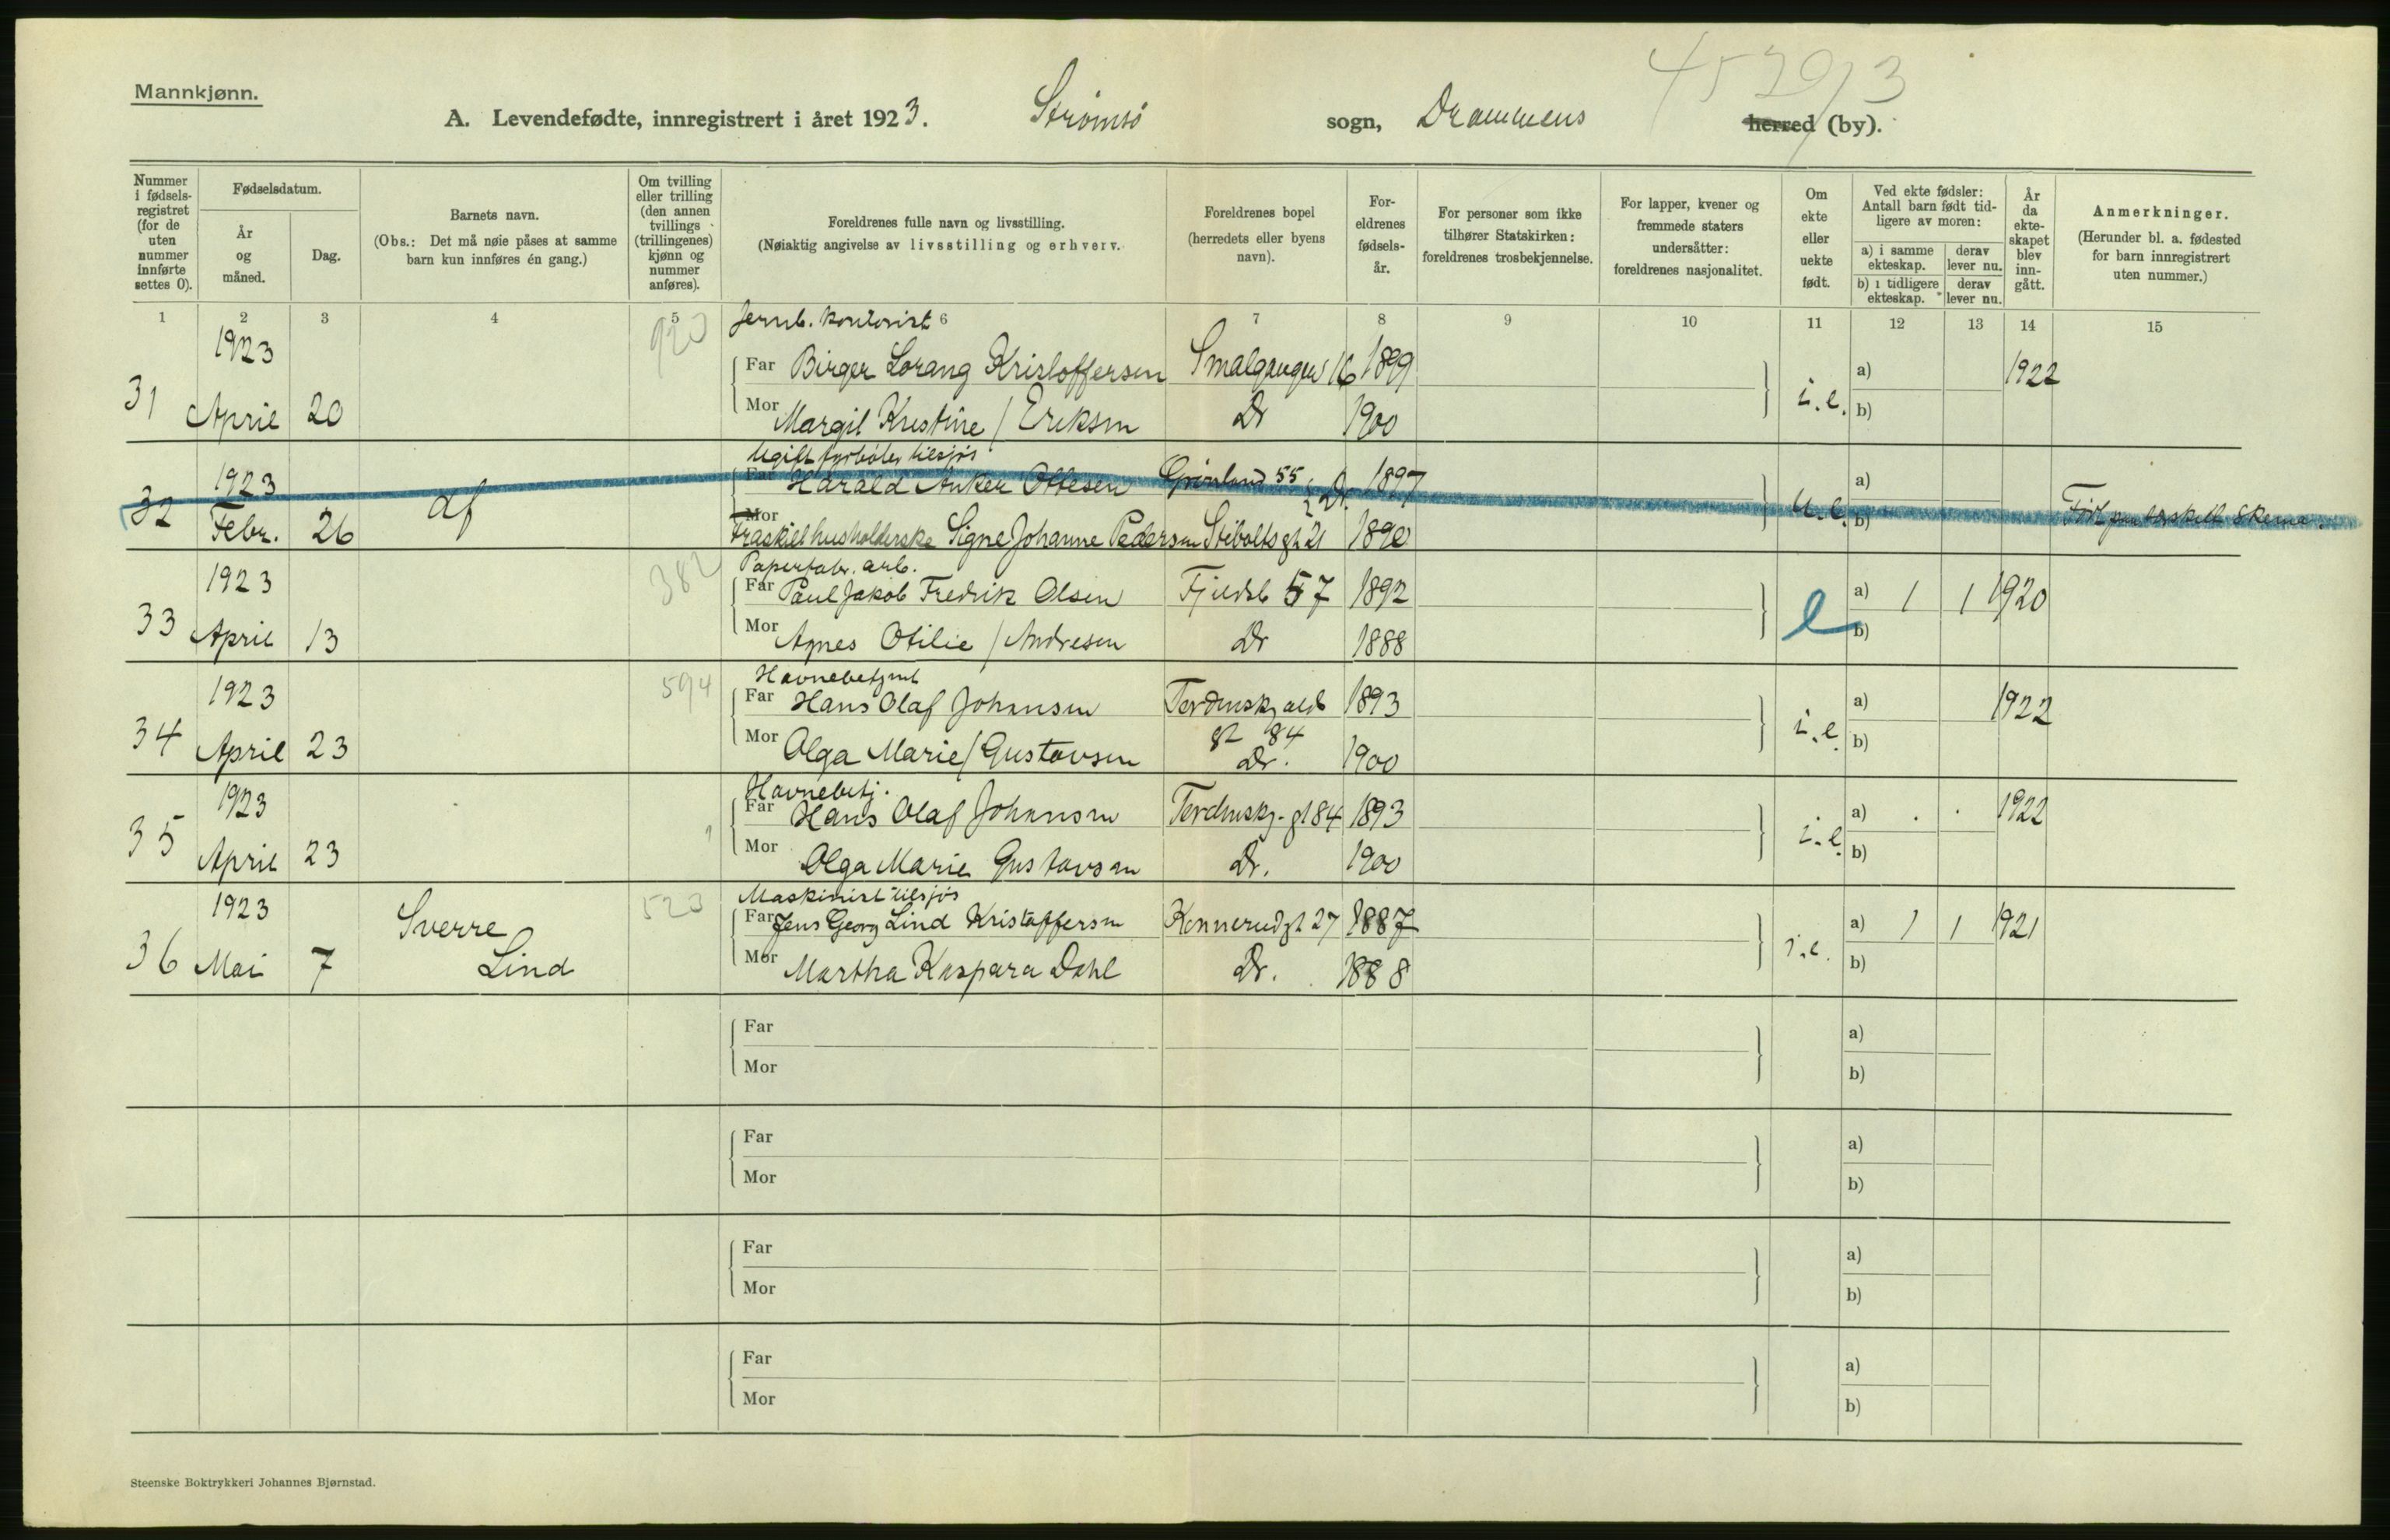 Mannkjønn.
45 29/3
A. Levendefødte, innregistrert i året 1923. Strømsø sogn, Drammens herred (by).
Nummer i fødsels-registret (for de uten nummer innførte settes 0).
Fødselsdatum.
År og måned.
Dag.
Barnets navn.
(Obs.: Det må nøie påses at samme barn kun innføres én gang.)
Om tvilling eller trilling (den annen tvillings (trillingenes) kjønn og nummer anføres).
Foreldrenes fulle navn og livsstilling.
(Nøiaktig angivelse av livsstilling og erhverv.
Foreldrenes bopel (herredets eller byens navn).
For-eldrenes fødsels-år.
For personer som ikke tilhører Statskirken: foreldrenes trosbekjennelse.
For lapper, kvener og fremmede staters undersåtter: foreldrenes nasjonalitet.
Om ekte eller uekte født.
Ved ekte fødsler: Antall barn født tid-ligere av moren:
a) i samme ekteskap. derav lever nu.
b) i tidligere ekteskap. derav lever nu.
År da ekte-skapet blev inn-gått.
Anmerkninger.
(Herunder bl. a. fødested for barn innregistrert uten nummer.)
1 2 3 4 5 6 7 8 9 10 11 12 13 14 15
920 Jernb. kontorist
1923 Far Birger Lorang Kristoffersen Smalgangen 16 1899 a) 1922
31 April 20 Mor Margit Kristine / Eriksen Dr 1900 i.e. b)
Ugift fyrbøter tilsjøs
1923 Far Harald Anker Ottesen Grønland 55 Dr. 1897 a)
32 Febr. 26 df Mor Fraskilt husholderske Signe Johanne Pedersen Stiboltsgt 21 1890 u.e. b) Ført paa særskilt skema.
382 Papirfabr. arb.
1923 Far Paul Jakob Fredrik Olsen Fjeldsb 57 1892 a) 1 1 1920
33 April 13 Mor Agnes Otilie / Andresen Dr 1888 e b)
594 Havnebetjent
1923 Far Hans Olaf Johansen Tordenskjolds 1893 a) 1922
gt 84
34 April 23 Mor Olga Marie / Gustavsen Dr. 1900 i.e. b)
Havnebetj.
1923 Far Hans Olaf Johansen Tordenskj. gt 84 1893 a) 1922
35 April 23 Mor Olga Marie Gustavsen Dr. 1900 i.e. b)
523 Maskinist tilsjøs
1923 Sverre Far Jens Georg Lind Kristoffersen Konnerudgt 27 1887 a) 1 1 1921
36 Mai 7 Lind Mor Martha Kaspara Dahl Dr. 1888 i.e. b)
Far a)
Mor b)
Far a)
Mor b)
Far a)
Mor b)
Far a)
Mor b)
Steenske Boktrykkeri Johannes Bjørnstad.